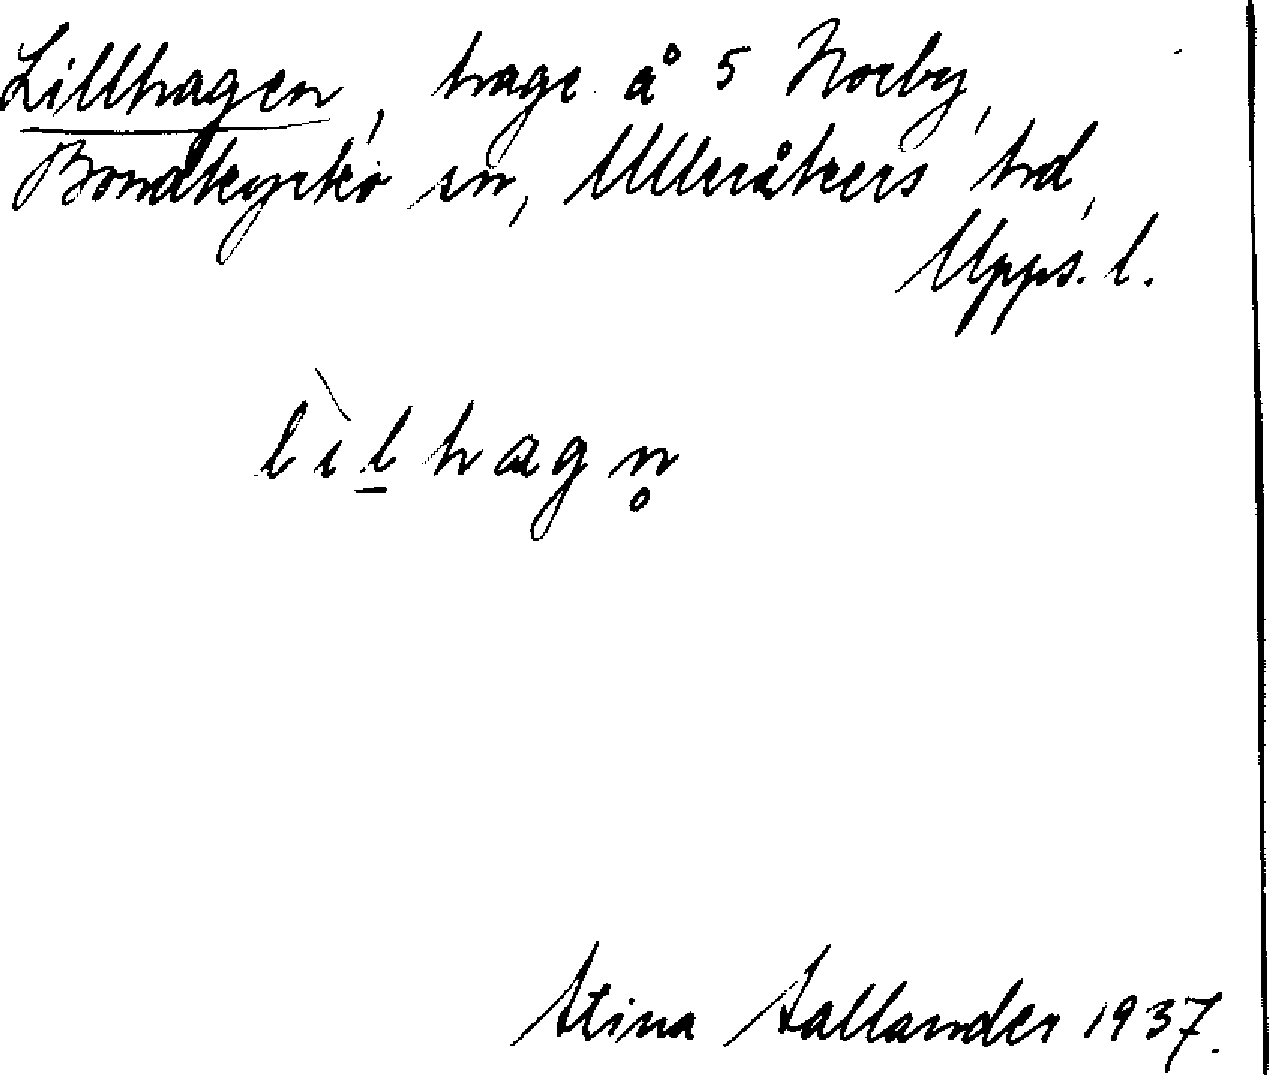 Lillhagen, hage å 5 Norby,
Bondkyrko sn, Ulleråkers hd,
Upps. l.
lìl̠hagn̥
Stina Sallander 1937.